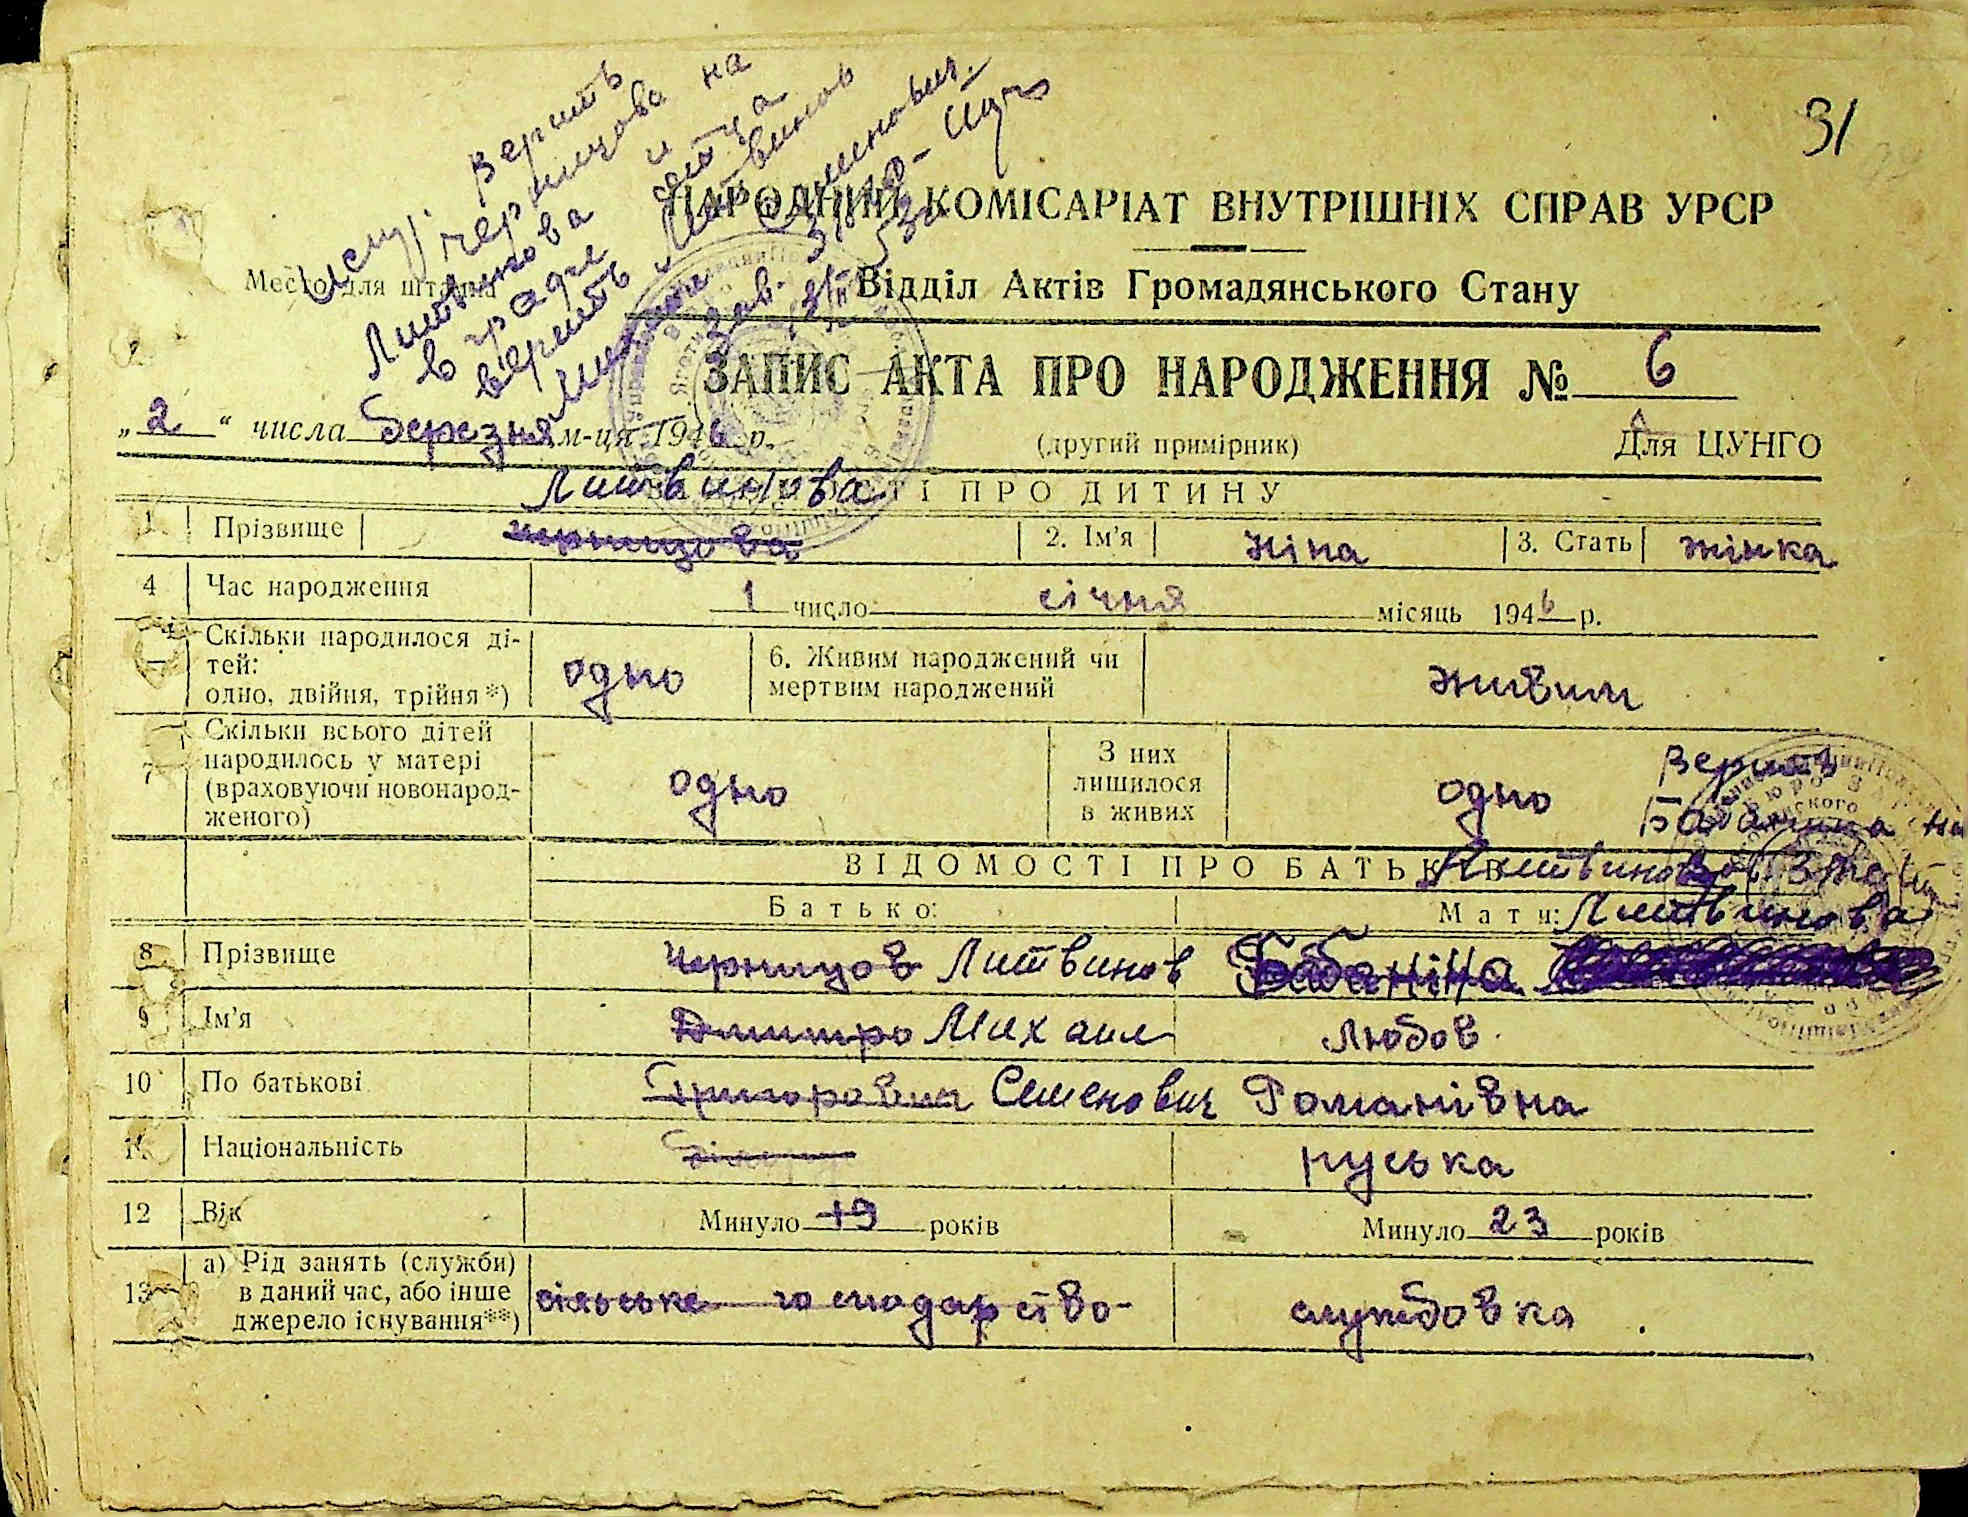 31
верить
черницова на
Литвинова и
в граде отца
верить Литвинов
НАРОДНИЙ КОМІСАРІАТ ВНУТРІШНІХ СПРАВ УРСР
Место для штампа
Відділ Актів Громадянського Стану
ЗАПИС АКТА ПРО НАРОДЖЕННЯ № 6
„2“ числа березня м-ця 1946 р.
(другий примірник)
Для ЦУНГО
Литвинова
ТІ ПРО ДИТИНУ
1 Прізвище черницова 2. Ім'я Ніна 3. Стать жінка
4 Час народження 1 число січня місяць 1946 р.
Скільки народилося ді-
тей:
одно, двійня, трійня*) одно
6. Живим народжений чи
мертвим народжений живим
7 Скільки всього дітей
народилось у матері
(враховуючи новонарод-
женого) одно
З них
лишилося
в живих одно
Верить
Бабанина на
ВІДОМОСТІ ПРО БАТЬКІВ
Литвинова
Батько: Мати: Литвинова
8 Прізвище Черницов Литвинов Бабаніна
9 Ім'я Дмитро Михаил Любов
10 По батькові Григорович Семенович Романівна
11 Національність руська
12 Вік Минуло 19 років Минуло 23 років
13 а) Рід занять (служби)
в даний час, або інше
джерело існування**) сільське господарство службовка